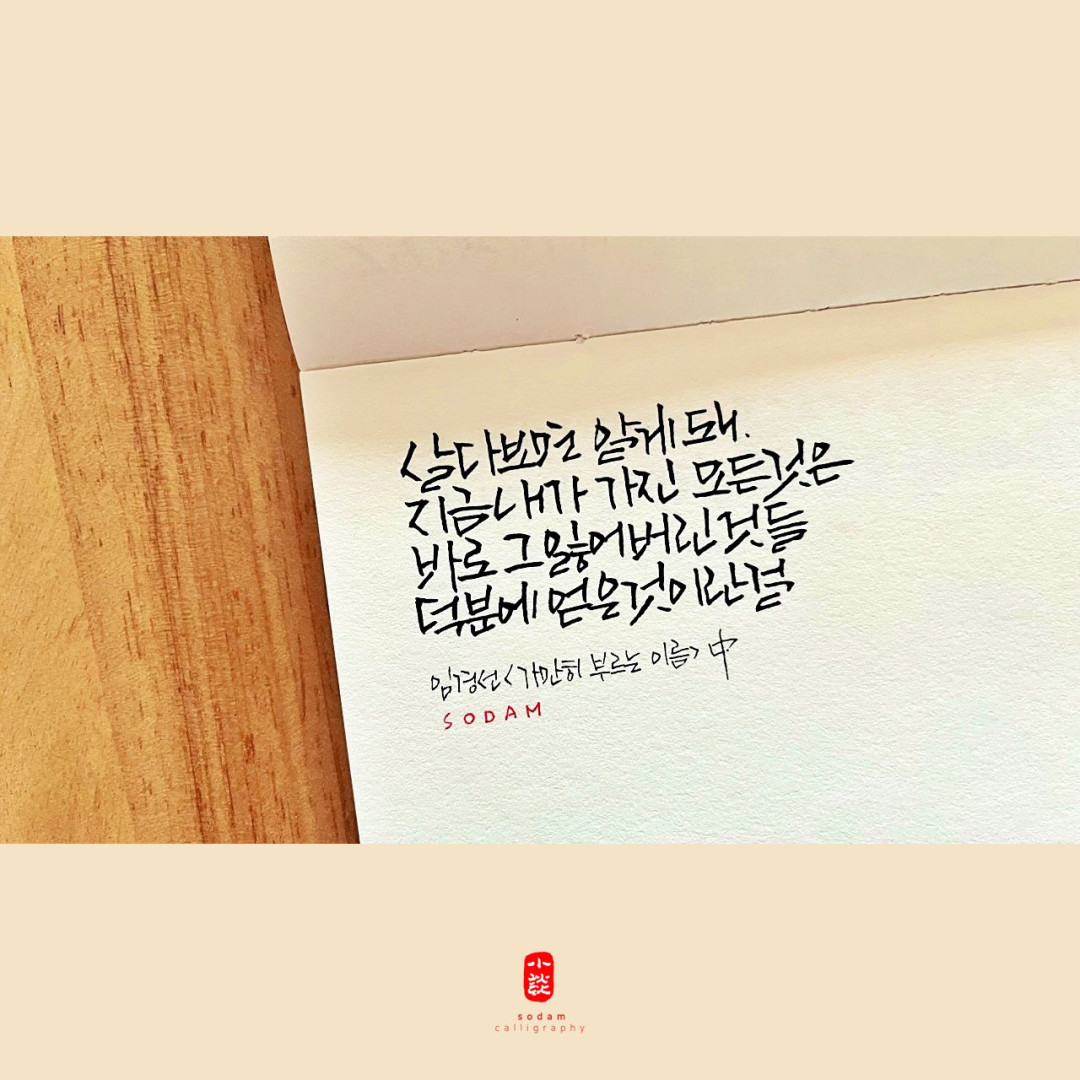 살다보면 알게 돼.
지금 내가 가진 모든것은
바로 그 잃어버린것들
덕분에 얻은것이란걸
임경선 <가만히 부르는 이름> 中
SODAM
小談
sodam
calligraphy